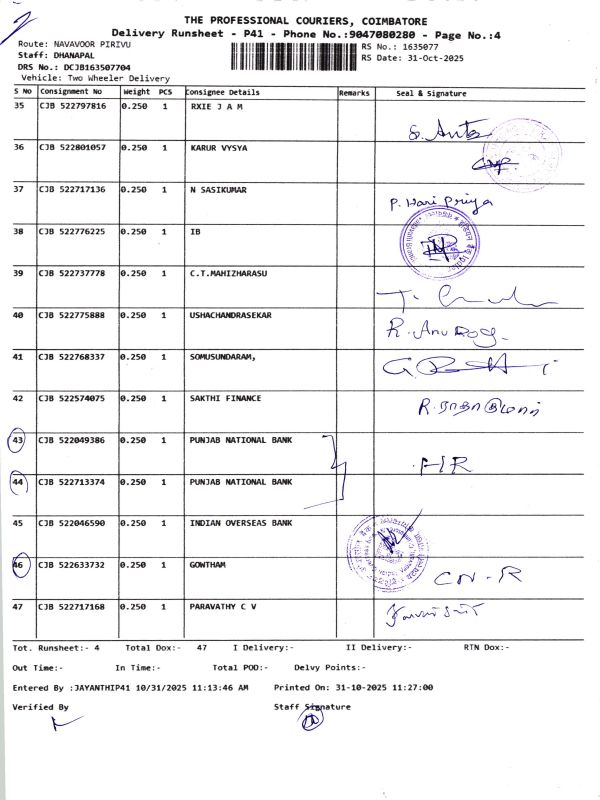 THE PROFESSIONAL COURIERS, COIMBATORE
Delivery Runsheet - P41 - Phone No.:9047080280 - Page No.:4
Route: NAVAVOOR PIRIVU RS No.: 1635077
Staff: DHANAPAL RS Date: 31-Oct-2025
DRS No.: DCJB163507704
Vehicle: Two Wheeler Delivery
S NO Consignment No Weight PCS Consignee Details Remarks Seal & Signature
35 CJB 522797816 0.250 1 RXIE J A M
36 CJB 522801057 0.250 1 KARUR VYSYA
37 CJB 522717136 0.250 1 N SASIKUMAR P. Hari Priya
38 CJB 522776225 0.250 1 IB
39 CJB 522737778 0.250 1 C.T.MAHIZHARASU
40 CJB 522775888 0.250 1 USHACHANDRASEKAR
41 CJB 522768337 0.250 1 SOMUSUNDARAM,
42 CJB 522574075 0.250 1 SAKTHI FINANCE
43 CJB 522049386 0.250 1 PUNJAB NATIONAL BANK
44 CJB 522713374 0.250 1 PUNJAB NATIONAL BANK
45 CJB 522046590 0.250 1 INDIAN OVERSEAS BANK
46 CJB 522633732 0.250 1 GOWTHAM
47 CJB 522717168 0.250 1 PARAVATHY C V
Tot. Runsheet:- 4 Total Dox:- 47 I Delivery:- II Delivery:- RTN Dox:-
Out Time:- In Time:- Total POD:- Delvy Points:-
Entered By :JAYANTHIP41 10/31/2025 11:13:46 AM Printed On: 31-10-2025 11:27:00
Verified By Staff Signature